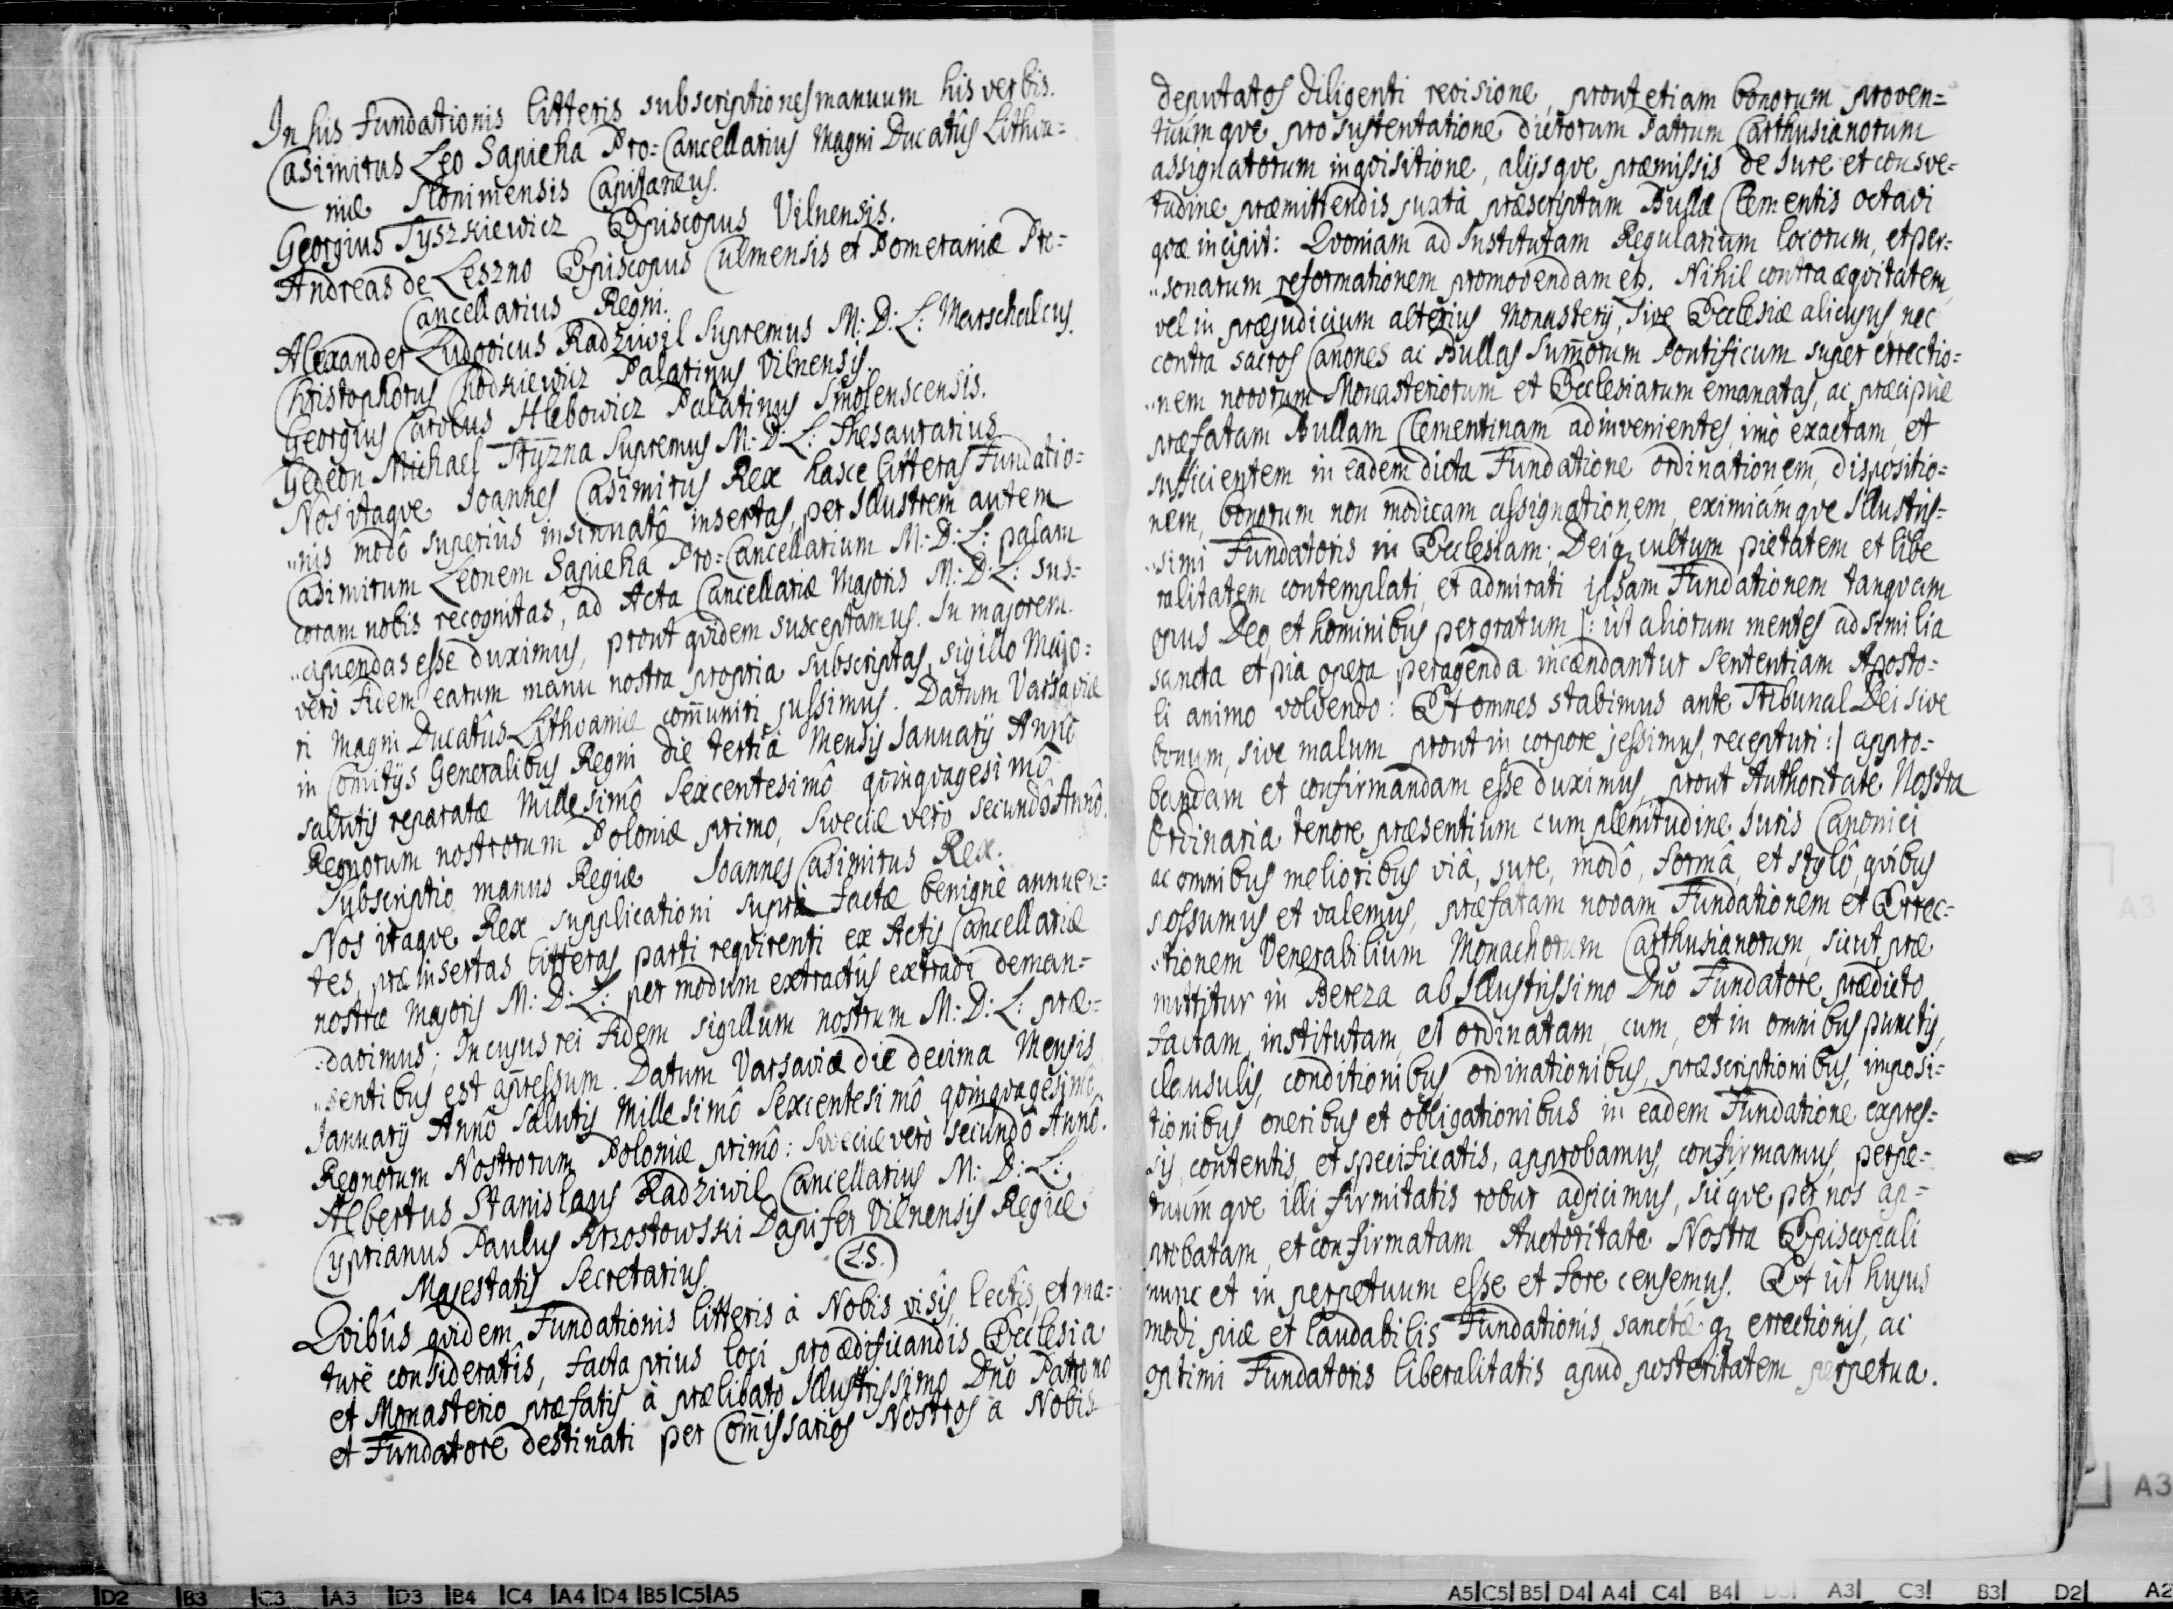 In his Fundationis litteris subscriptiones manuum his verbis.
Casimirus Leo Sapieha Pro=Cancellarius Magni Ducatûs Lithva=
niæ Slonimensis Capitaneus.
Georgius Tyszkiewicz Episcopus Vilnensis.
Andreas de Leszno Episcopus Culmensis et Pomeraniæ Pro=
Cancellarius Regni.
Alexander Ludovicus Radziwil Supremus M: D: L: Marschalcus.
Christophorus Chodkiewicz Palatinus Vilnensis.
Georgius Carolus Hlebowicz Palatinus Smolenscensis.
Gedeon Michael Tryzna Supremus M: D: L: Thesaurarius
Nos itaqve Joannes Casimirus Rex hasce litteras Fundatio=
„nis modô superiùs insinuatô insertas, per Illustrem autem
Casimirum Leonem Sapieha Pro=Cancellarium M: D: L: palam
coram nobis recognitas, ad Acta Cancellariæ Majoris M: D: L: sus=
„cipiendas esse duximus, prout qvidem susceptamus. In majorem
verò fidem earum manu nostra propria subscriptas, sigillo Majo=
ri Magni Ducatûs Lithvaniæ com̄uniri jussimus. Datum Varsaviæ
in Comitijs Generalibus Regni die tertiâ Mensis Januarij Annô
salutis reparatæ Millesimô Sexcentesimô qvinqvagesimô
Regnorum nostrorum Poloniæ primo, Sveciæ verò secundô Annô.
Subscriptio manus Regiæ Joannes Casimirus Rex.
Nos itaqve Rex supplicationi supra factæ benignè annuen=
tes, præinsertas litteras parti reqvirenti ex Actis Cancellariæ
nostræ Majoris M: D: L: per modum extractûs extradi deman=
„davimus; In cujus rei fidem sigillum nostrum M: D: L: præ=
„sentibus est ap̄ressum. Datum Varsaviæ die decima Mensis
Januarij Annô salutis Millesimô Sexcentesimô qvinqvagesimô
Regnorum Nostrorum Poloniæ primô: Sveciæ verò secundô Annô.
Albertus Stanislaus Radziwil Cancellarius M: D: L:
Cyprianus Paulus Brzostowski Dapifer Vilnensis Regiæ
Majestatis Secretarius. L.S.
Qvibûs qvidem Fundationis litteris à Nobis visis, lectîs, et ma=
turè consideratîs, facta priùs loci pro ædificandis Ecclesia
et Monasterio præfatis à prælibato Illustrissimo Dn̄o Patrono
et Fundatore destinati per Com̄issarios Nostros à Nobis
deputatos diligenti revisione, prout etiam bonorum proven=
tuumqve pro sustentatione dictorum Patrum Carthusianorum
assignatorum inqvisitione, alijsqve præmissis de Jure et consve=
tudine præmittendis juxta præscriptum Bullæ Clementis octavi
qvæ incipit: Qvoniam ad Institutam Regularium locorum, et per=
„sonarum reformationem promovendam etz. Nihil contra æqvitatem,
vel in præjudicium alterius Monasterij, sive Ecclesiæ alicujus, nec
contra sacros Canones ac Bullas Sum̄orum Pontificum super errectio=
„nem novorum Monasteriorum et Ecclesiarum emanatas, ac præcipuè
præfatam Bullam Clementinam adinvenientes, imò exactam, et
sufficientem in eadem dicta Fundatione ordinationem, dispositio=
nem, bonorum non modicam assignationem, eximiamqve Illustris=
„simi Fundatoris in Ecclesiam; Deiq̨ cultum pietatem et libe
ralitatem contemplati, et admirati ipsam Fundationem tanqvam
opus Deo, et hominibus pergratum |: ut aliorum mentes ad similia
sancta et pia opera peragenda incendantur sententiam Aposto=
li animo volvendo: Et omnes stabimus ante Tribunal Dei sive
bonum, sive malum prout in corpore jessimus, recepturi :| appro=
bandam et confirmandam esse duximus, prout Authoritate Nostra
Ordinaria tenore præsentium cum plenitudine Juris Canonici
ac omnibus melioribus viâ, jure, modô, formâ, et stylô, qvibus
possumus et valemus, præfatam novam Fundationem et Errec=
„tionem Venerabilium Monachorum Carthusianorum, sicut præ
mittitur in Bereza ab Illustrissimo Dn̄o Fundatore prædicto
factam, institutam, et ordinatam, cum, et in omnibus punctis,
clausulis, conditionibus, ordinationibus, præscriptionibus, imposi=
tionibus oneribus et obligationibus in eadem Fundatione expres=
sis, contentis, et specificatis, approbamus, confirmamus, perpe=
tuumqve illi firmitatis robur adjicimus, sicqve per nos ap=
probatam, et confirmatam Auctoritate Nostra Episcopali
nunc et in perpetuum esse et fore censemus. Et ut hujus
modi piæ et laudabilis Fundationis, sanctæq̨ errectionis, ac
optimi Fundatoris liberalitatis apud posteritatem perpetua.
A2 D2 B3 C3 A3 D3 B4 C4 A4 D4 B5 C5 A5
A5 C5 B5 D4 A4 C4 B4 D3 A3 C3 B3 D2 A2
A3
A3